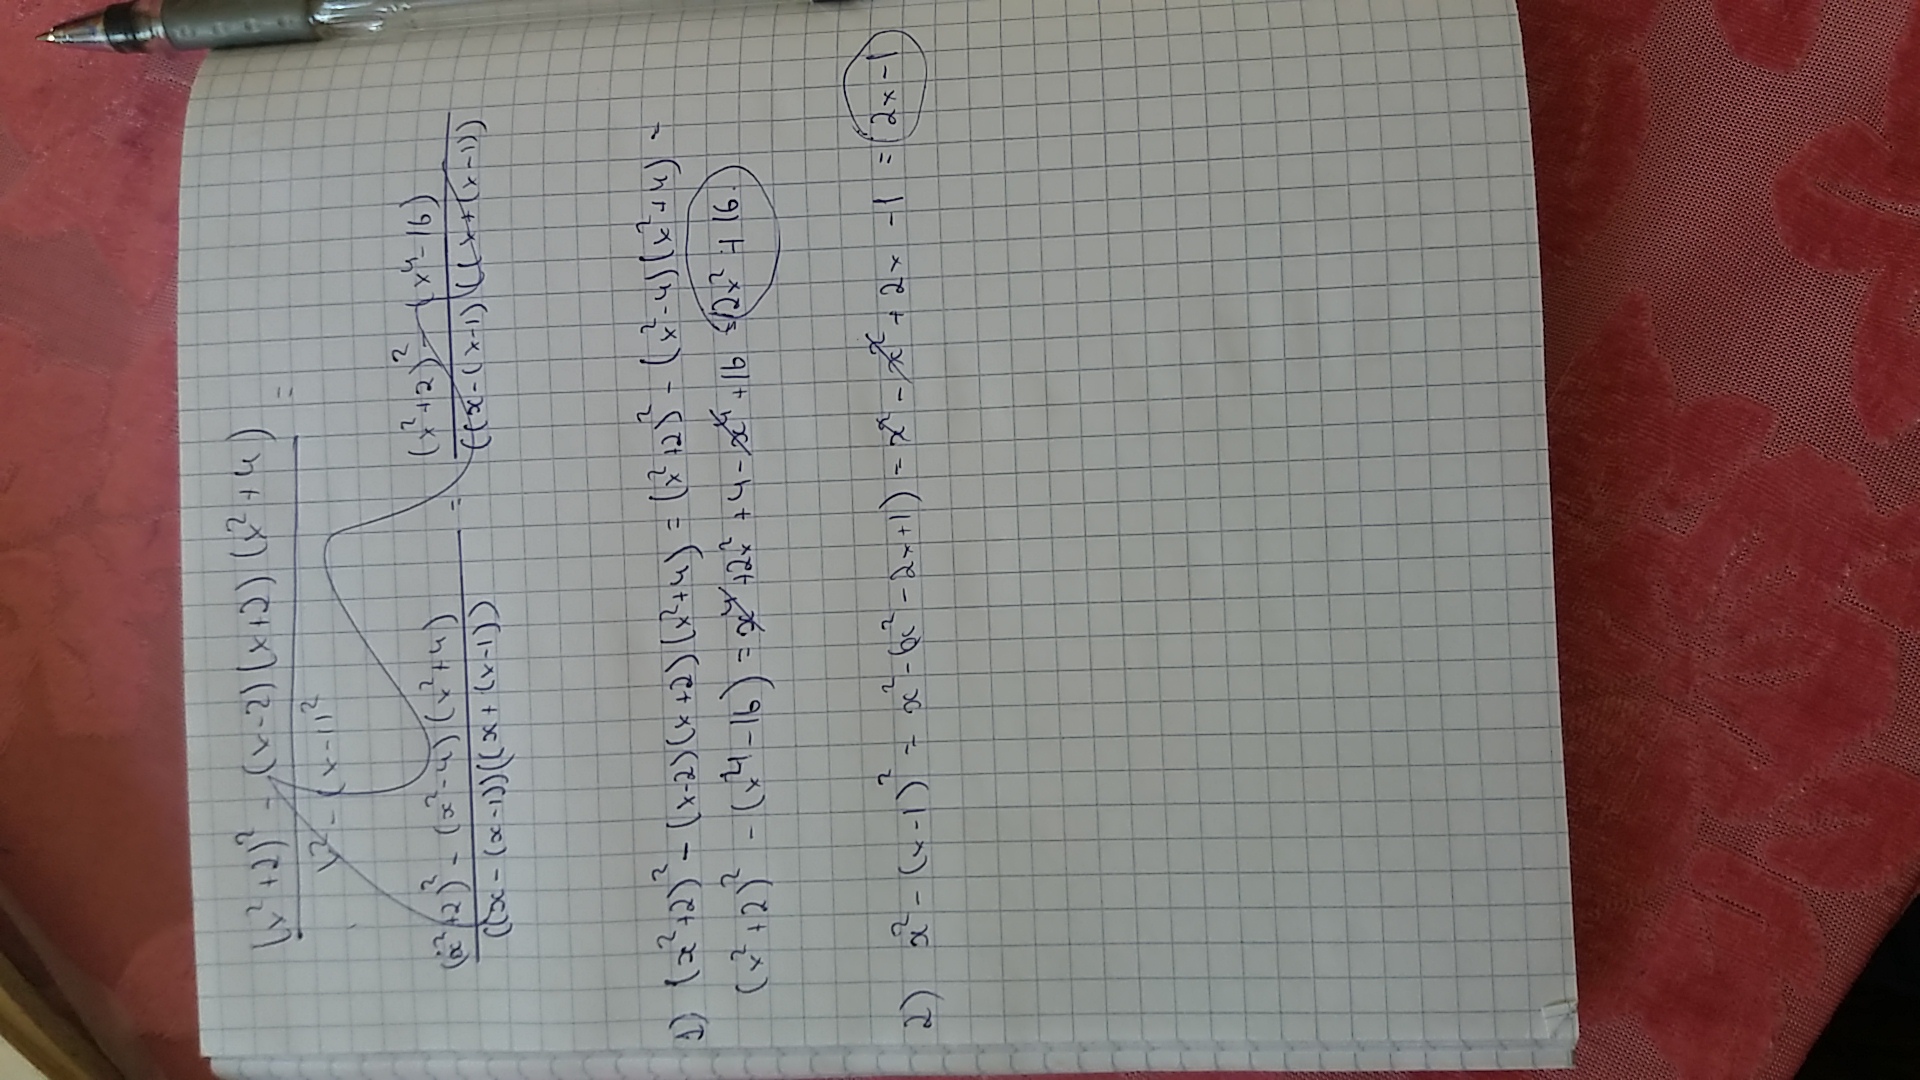 (x²+2)² - (x-2)(x+2)(x²+4) =
x² - (x-1)²
(x²+2)² - (x²-4)(x²+4) = (x²+2)² - (x⁴-16)
((x-(x-1))((x+(x-1)) ((x-(x-1)((x+(x-1))
1) (x²+2)² - (x-2)(x+2)(x²+4) = (x²+2)² - (x²-4)(x²+4) =
(x²+2)² - (x⁴-16) = x⁴+2x²+4-x⁴+16 = 2x²+16.
2) x² - (x-1)² = x² - (x² - 2x+1) = x² - x² + 2x - 1 = 2x-1